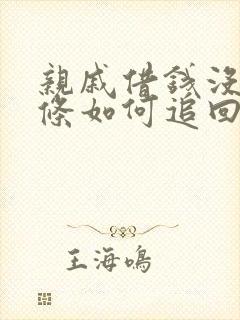 親戚借錢沒
條如何追回
王海鳴